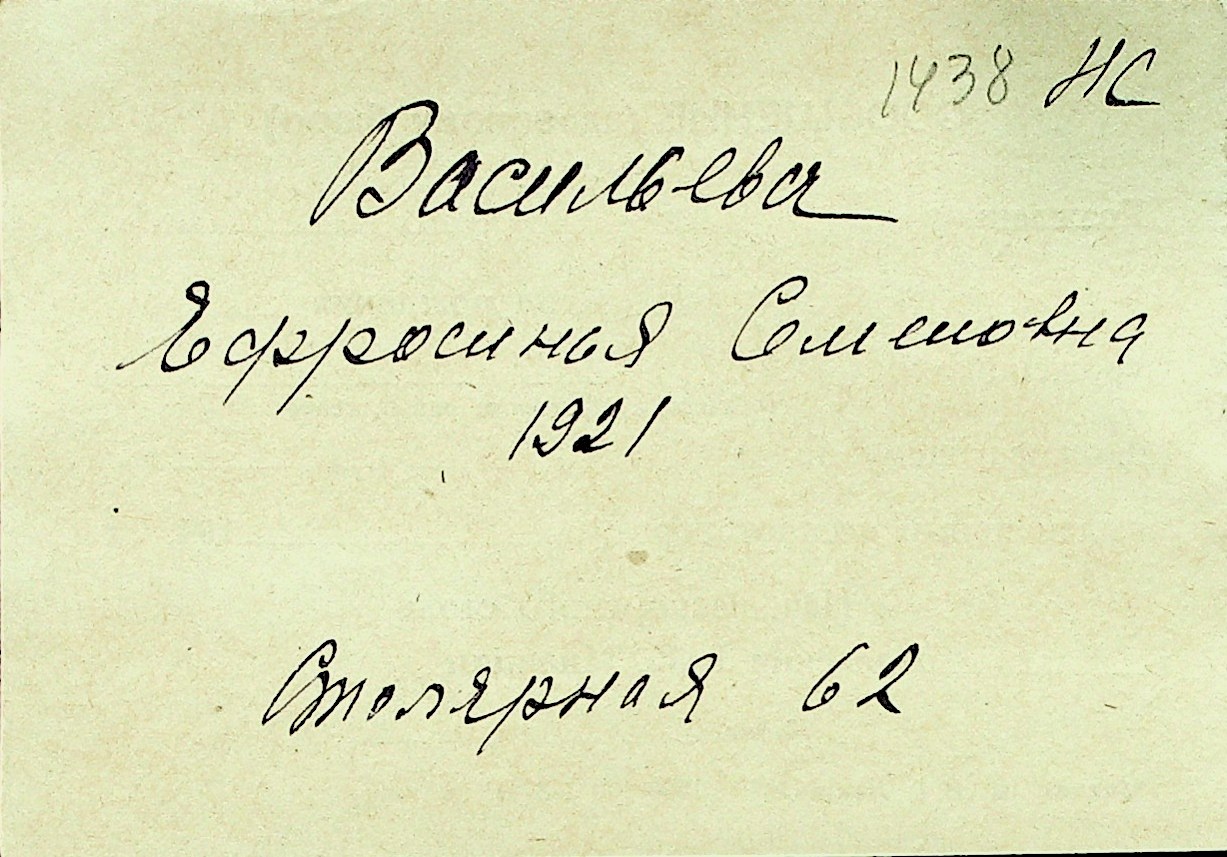 1438 НС
Васильева
Ефросинья Семеновна
1921
Столярная 62